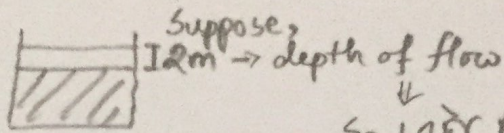 Suppose,
2m → depth of flow
⇓